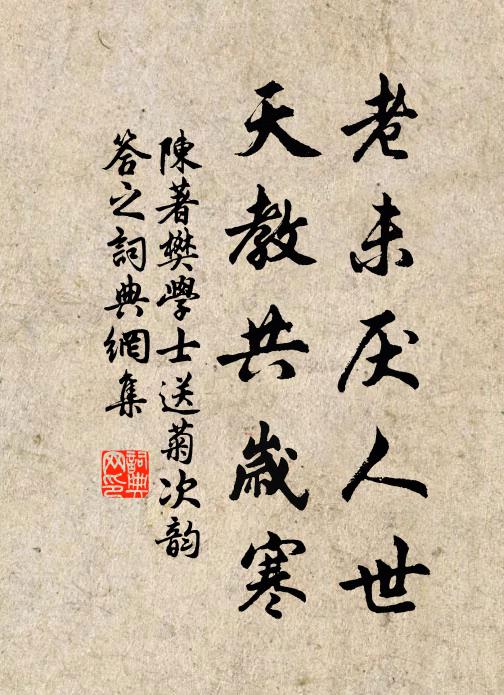 老未厌人世
天教共歲寒
陳著樊學士送菊次韵
答之詞典網集
詞典
网印